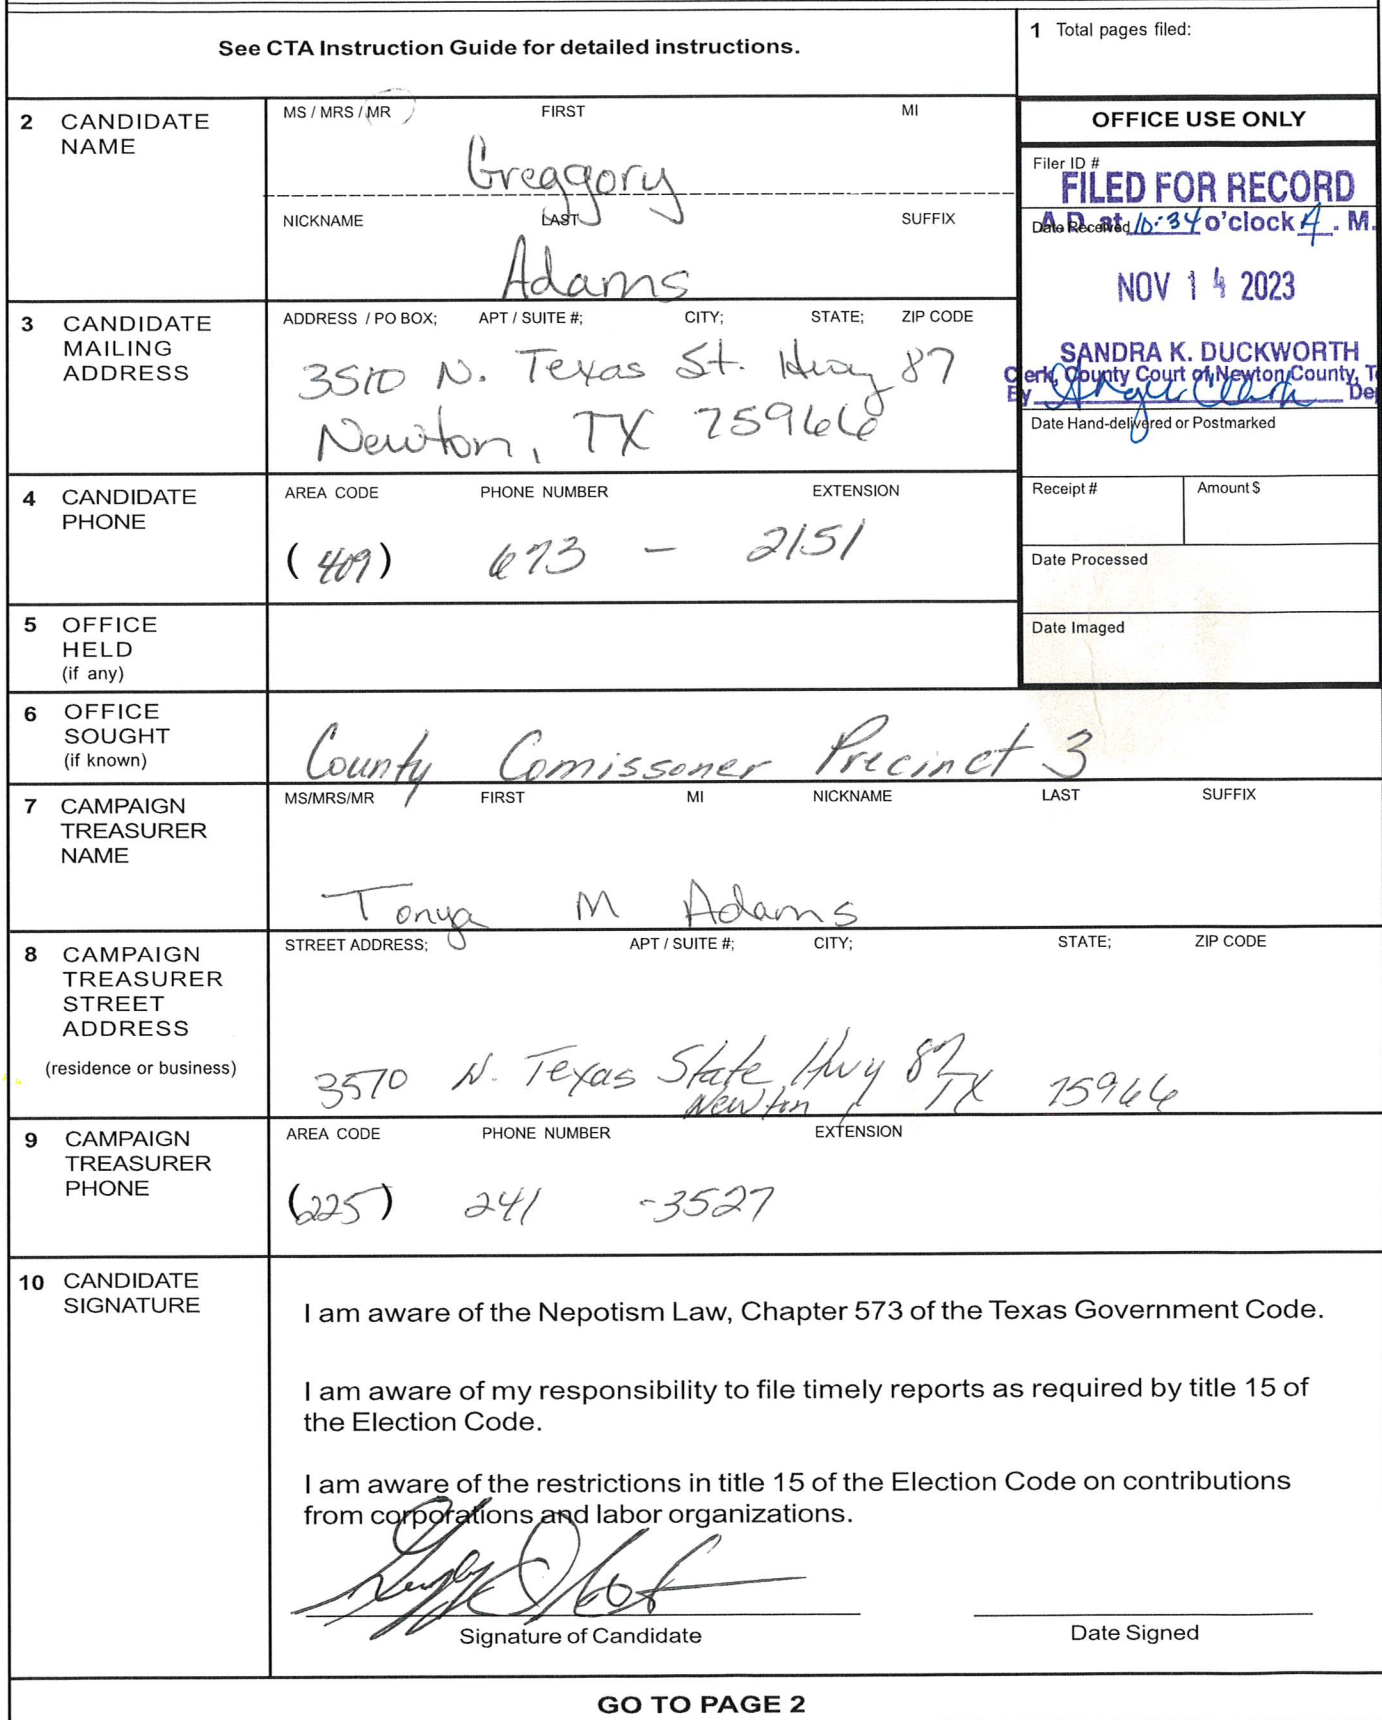 See CTA Instruction Guide for detailed instructions.
1 Total pages filed:
2 CANDIDATE NAME
MS / MRS / MR FIRST MI
Greggory
NICKNAME LAST SUFFIX
Adams
OFFICE USE ONLY
Filer ID #
FILED FOR RECORD
Date Received
A.D. at 10:34 o'clock A. M.
NOV 14 2023
SANDRA K. DUCKWORTH
Clerk, County Court of Newton County, T
By Angie Clark De
Date Hand-delivered or Postmarked
Receipt # Amount $
Date Processed
Date Imaged
3 CANDIDATE MAILING ADDRESS
ADDRESS / PO BOX; APT / SUITE #; CITY; STATE; ZIP CODE
N. Texas St. Hwy 87
Newton, TX 75966
4 CANDIDATE PHONE
AREA CODE PHONE NUMBER EXTENSION
(409) 673 - 2151
5 OFFICE HELD (if any)
6 OFFICE SOUGHT (if known)
County Comissoner Precinct 3
7 CAMPAIGN TREASURER NAME
MS/MRS/MR FIRST MI NICKNAME LAST SUFFIX
Tonya M Adams
8 CAMPAIGN TREASURER STREET ADDRESS
(residence or business)
STREET ADDRESS; APT / SUITE #; CITY; STATE; ZIP CODE
3570 N. Texas State Hwy 87
Newton, TX 75966
9 CAMPAIGN TREASURER PHONE
AREA CODE PHONE NUMBER EXTENSION
(225) 241 -3527
10 CANDIDATE SIGNATURE
I am aware of the Nepotism Law, Chapter 573 of the Texas Government Code.
I am aware of my responsibility to file timely reports as required by title 15 of
the Election Code.
I am aware of the restrictions in title 15 of the Election Code on contributions
from corporations and labor organizations.
Signature of Candidate
Date Signed
GO TO PAGE 2